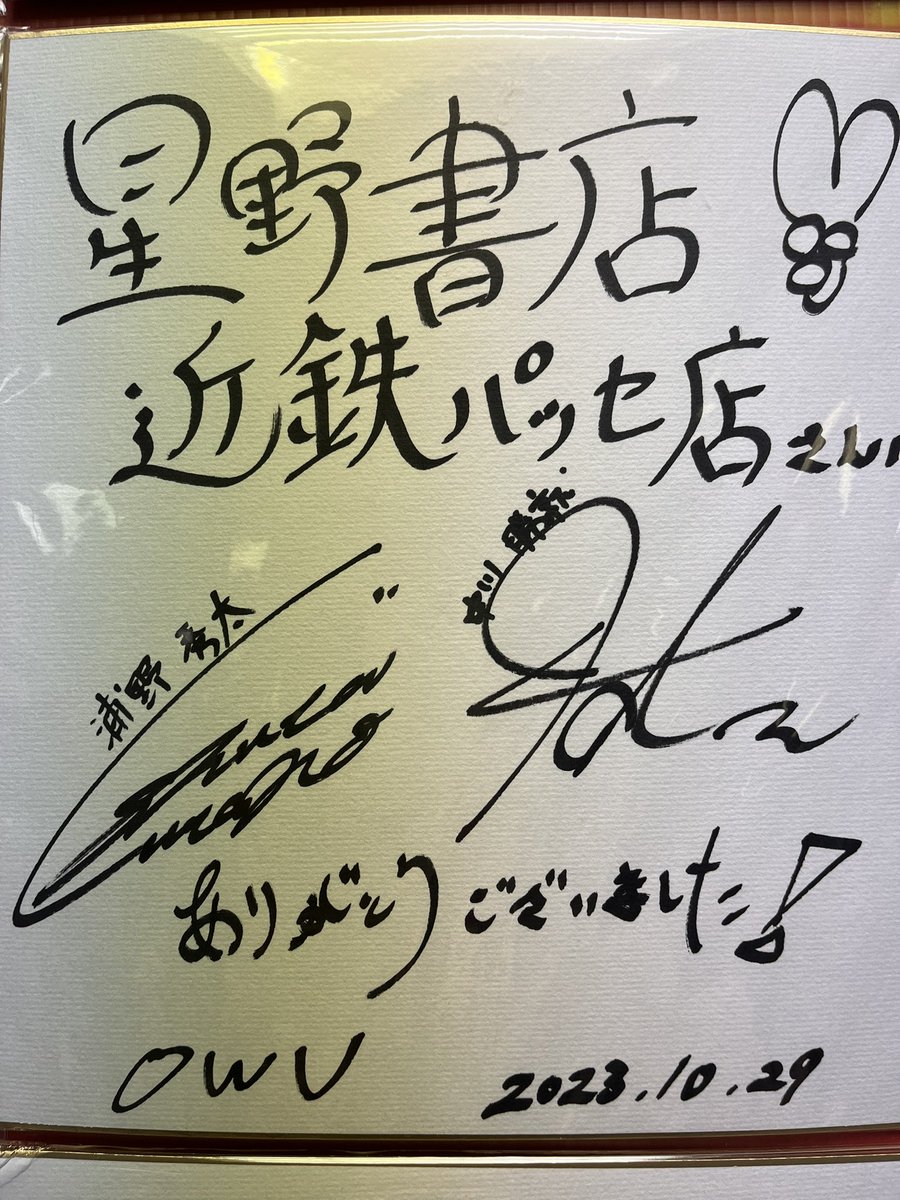 星野書店
近鉄パッセ店さん
中川 勝就
浦野 秀太
ありがとうございました!
OWV
2023.10.29